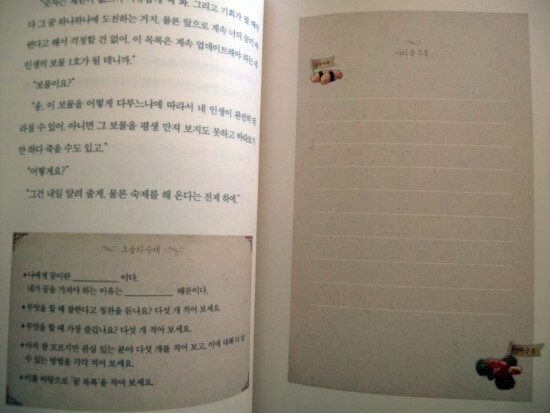 다 그 꿈 하나하나에 도전하는 거지. 물론 앞으로 계속 너의 꿈이
한다고 해서 걱정할 건 없어. 이 목록은 계속 업데이트해야 하는
인생의 보물 1호가 될 테니까."
"보물이요?"
"응, 이 보물을 어떻게 다루느냐에 따라서 네 인생이 완전히 달
라질 수 있어. 아니면 그 보물을 평생 만져 보지도 못하고 바라보기
만 하다 죽을 수도 있고."
"어떻게요?"
"그건 내일 알려 줄게. 물론 숙제를 해 온다는 전제 하에."
오늘의 숙제
• 나에게 꿈이란 ________ 이다.
내가 꿈을 가져야 하는 이유는 ________ 때문이다.
• 무엇을 할 때 잘한다고 칭찬을 듣나요? 다섯 개 적어 보세요.
• 무엇을 할 때 가장 즐겁나요? 다섯 개 적어 보세요.
• 아직 잘 모르지만 관심 있는 분야 다섯 개를 적어 보고, 이에 대해 더 알
수 있는 방법을 각각 적어 보세요.
• 이를 바탕으로 '꿈 목록'을 적어 보세요.
나의 꿈 목록